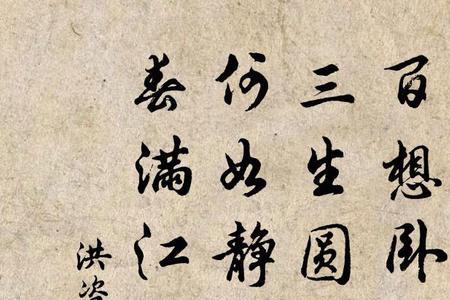 百想卧
三生圆
何如静
春满江
洪咨